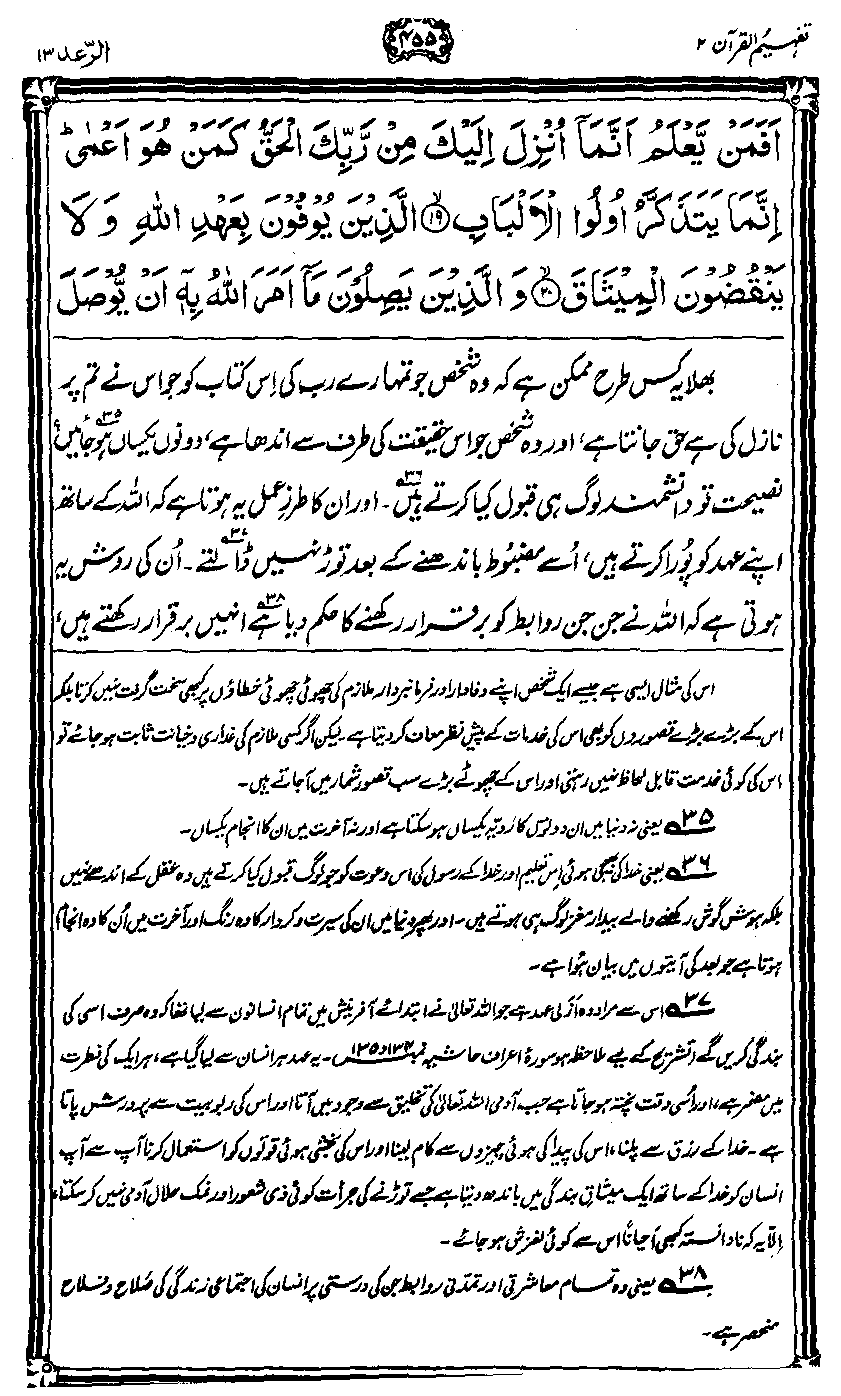 تفہیم القرآن ۲
۴۵۵
الرعد ۱۳
اَفَمَنْ يَّعْلَمُ اَنَّمَآ اُنْزِلَ اِلَيْكَ مِنْ رَّبِّكَ الْحَقُّ كَمَنْ هُوَ اَعْمٰىؕ
اِنَّمَا يَتَذَكَّرُ اُولُوا الْاَلْبَابِۙ۝۱۹ الَّذِيْنَ يُوْفُوْنَ بِعَهْدِ اللّٰهِ وَلَا
يَنْقُضُوْنَ الْمِيْثَاقَۙ۝۲۰ وَالَّذِيْنَ يَصِلُوْنَ مَآ اَمَرَ اللّٰهُ بِهٖٓ اَنْ يُّوْصَلَ
بھلا یہ کس طرح ممکن ہے کہ وہ شخص جو تمہارے رب کی اِس کتاب کو جو اس نے تم پر
نازل کی ہے حق جانتا ہے، اور وہ شخص جو اس حقیقت کی طرف سے اندھا ہے، دونوں یکساں ہو جائیں؟ ۳۵
نصیحت تو دانشمند لوگ ہی قبول کیا کرتے ہیں ۳۶۔ اور ان کا طرزِ عمل یہ ہوتا ہے کہ اللہ کے ساتھ
اپنے عہد کو پُورا کرتے ہیں، اُسے مضبُوط باندھنے کے بعد توڑ نہیں ڈالتے ۳۷۔ اُن کی روش یہ
ہوتی ہے کہ اللہ نے جن جن روابط کو برقرار رکھنے کا حکم دیا ہے ۳۸ انہیں برقرار رکھتے ہیں،
اس کی مثال ایسی ہے جیسے ایک شخص اپنے وفادار اور فرمانبردار ملازم کی چھوٹی چھوٹی خطاؤں پر کبھی سخت گرفت نہیں کرتا بلکہ
اس کے بڑے بڑے قصوروں کو بھی اس کی خدمات کے پیش نظر معاف کر دیتا ہے۔ لیکن اگر کسی ملازم کی غداری و خیانت ثابت ہو جائے تو
اس کی کوئی خدمت قابل لحاظ نہیں رہتی اور اس کے چھوٹے بڑے سب قصور شمار میں آجاتے ہیں۔
۳۵ یعنی نہ دنیا میں ان دونوں کا رویّہ یکساں ہو سکتا ہے اور نہ آخرت میں ان کا انجام یکساں۔
۳۶ یعنی خدا کی بھیجی ہوئی اِس تعلیم اور خدا کے رسول کی اس دعوت کو جو لوگ قبول کیا کرتے ہیں وہ عقل کے اندھے نہیں
بلکہ ہوش گوش رکھنے والے بیدار مغز لوگ ہی ہوتے ہیں۔ اور پھر دنیا میں ان کی سیرت و کردار کا وہ رنگ اور آخرت میں اُن کا وہ انجام
ہوتا ہے جو بعد کی آیتوں میں بیان ہُوا ہے۔
۳۷ اس سے مراد وہ اَزلی عہد ہے جو اللہ تعالیٰ نے ابتدائے آفرینش میں تمام انسانوں سے لیا تھا کہ وہ صرف اسی کی
بندگی کریں گے (تشریح کے لیے ملاحظہ ہو سورۂ اعراف حاشیہ نمبر ۱۳۴ و ۱۳۵)۔ یہ عہد ہر انسان سے لیا گیا ہے، ہر ایک کی فطرت
میں مضمر ہے، اور اُسی وقت پختہ ہو جاتا ہے جب آدمی اللہ تعالیٰ کی تخلیق سے وجود میں آتا اور اس کی ربوبیت سے پرورش پاتا
ہے۔ خدا کے رزق سے پلنا، اس کی پیدا کی ہوئی چیزوں سے کام لینا اور اس کی بخشی ہوئی قوتوں کو استعمال کرنا آپ سے آپ
انسان کو خدا کے ساتھ ایک میثاق بندگی میں باندھ دیتا ہے جسے توڑنے کی جرأت کوئی ذی شعور اور نمک حلال آدمی نہیں کر سکتا،
اِلّا یہ کہ نادانستہ کبھی اَحیاناً اس سے کوئی لغزش ہو جائے۔
۳۸ یعنی وہ تمام معاشرتی اور تمدنی روابط جن کی درستی پر انسان کی اجتماعی زندگی کی صَلاح و فلاح
منحصر ہے۔